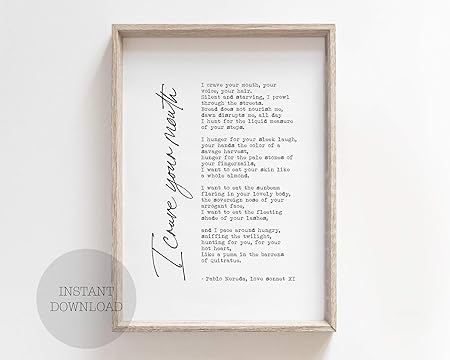 I crave your mouth
I crave your mouth, your
voice, your hair.
Silent and starving, I prowl
through the streets.
Bread does not nourish me,
dawn disrupts me, all day
I hunt for the liquid measure
of your steps.
I hunger for your sleek laugh,
your hands the color of a
savage harvest,
hunger for the pale stones of
your fingernails,
I want to eat your skin like
a whole almond.
I want to eat the sunbeam
flaring in your lovely body,
the sovereign nose of your
arrogant face,
I want to eat the fleeting
shade of your lashes,
and I pace around hungry,
sniffing the twilight,
hunting for you, for your
hot heart,
Like a puma in the barrens
of Quitratue.
- Pablo Neruda, Love sonnet XI
INSTANT
DOWNLOAD